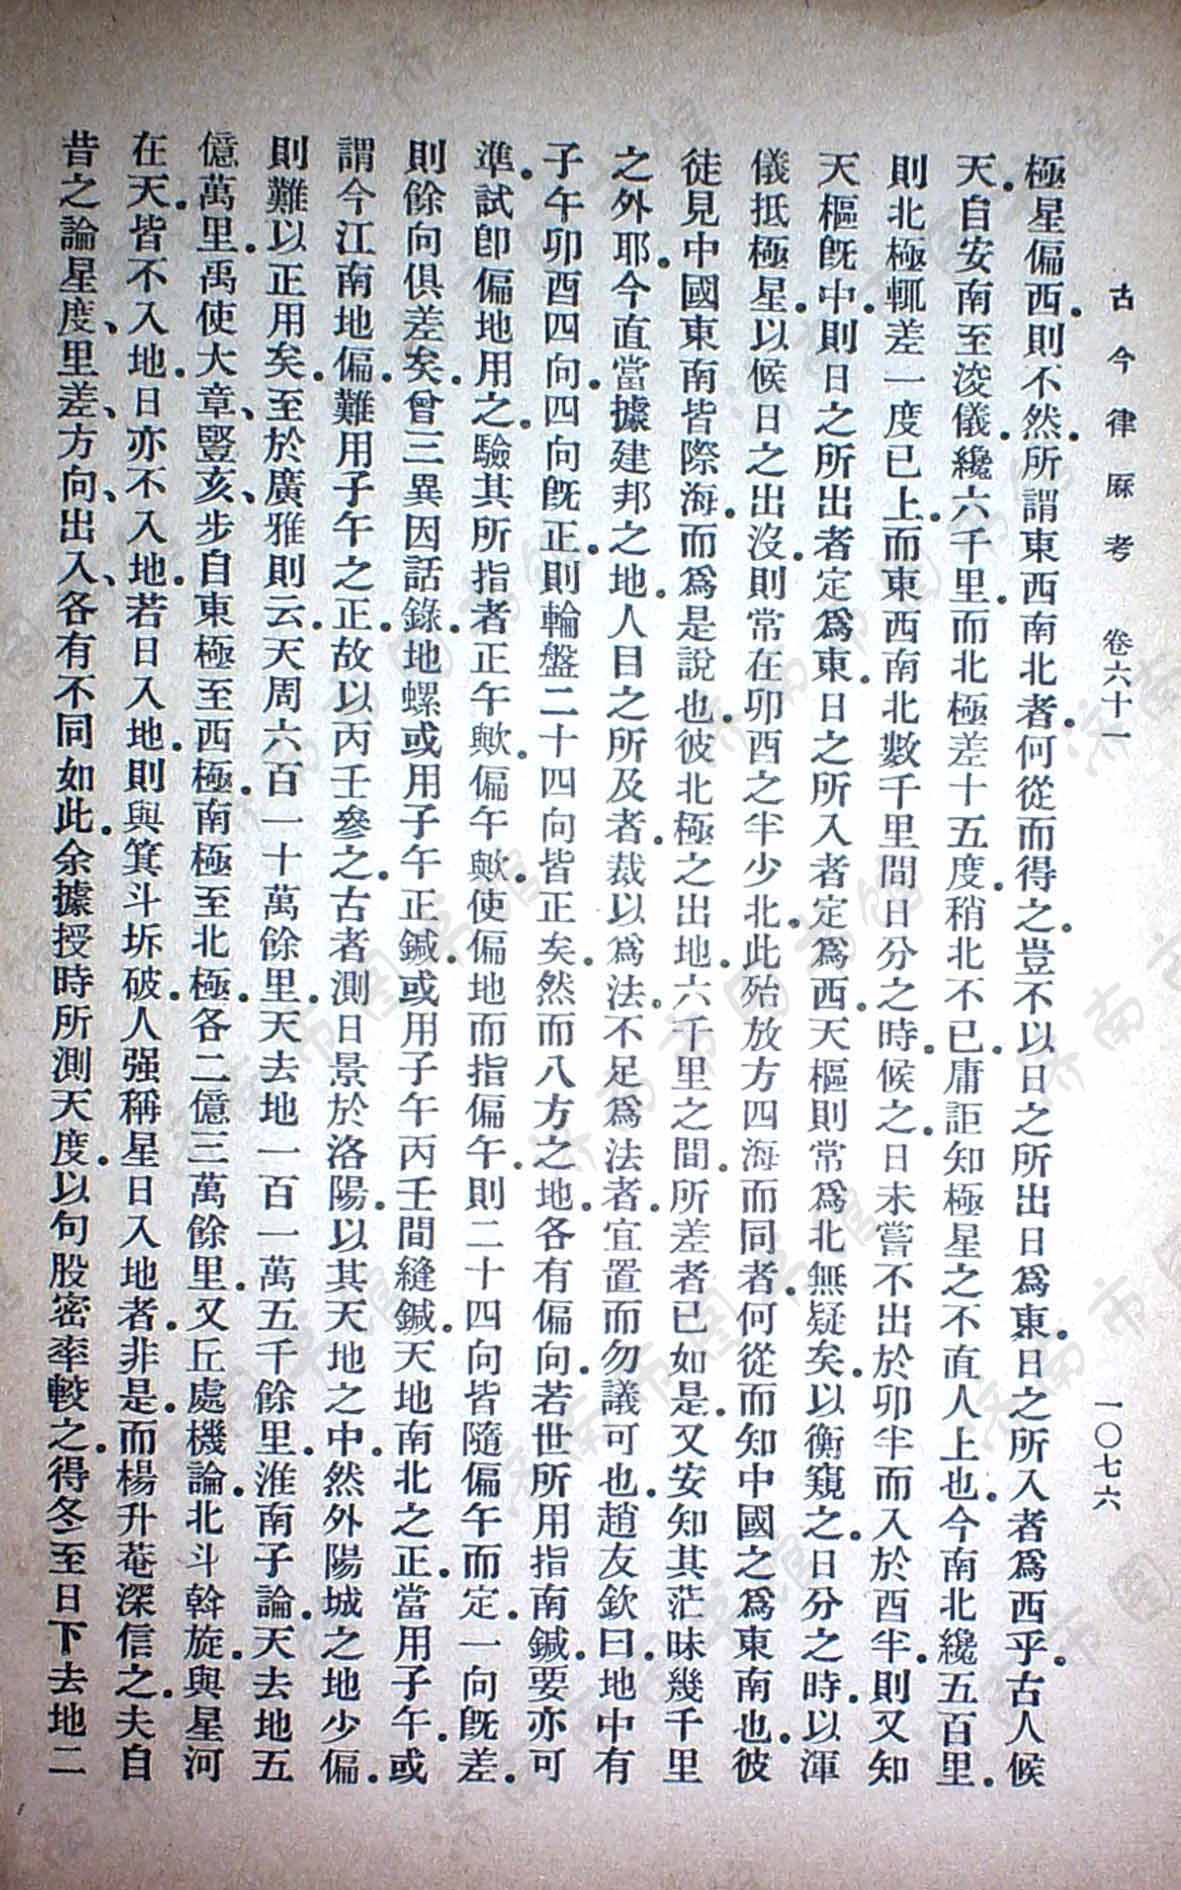 古今律厤考 卷六十一 一〇七六
極星偏西。則不然。所謂東西南北者。何從而得之。豈不以日之所出日爲東。日之所入者爲西乎。古人候
天。自安南至浚儀。纔六千里。而北極差十五度。稍北不已。庸詎知極星之不直人上也。今南北纔五百里。
則北極輒差一度已上。而東西南北數千里間日分之時。候之。日未嘗不出於卯半而入於酉半。則又知
天樞旣中。則日之所出者定爲東。日之所入者定爲西。天樞則常爲北無疑矣。以衡窺之。日分之時。以渾
儀抵極星。以候日之出沒。則常在卯酉之半少北。此殆放方四海而同者。何從而知中國之爲東南也。彼
徒見中國東南皆際海。而爲是說也。彼北極之出地。六千里之間。所差者已如是。又安知其茫昧幾千里
之外耶。今直當據建邦之地。人目之所及者。裁以爲法。不足爲法者。宜置而勿議可也。趙友欽曰。地中有
子午卯酉四向。四向旣正。則輪盤二十四向皆正矣。然而八方之地。各有偏向。若世所用指南鍼。要亦可
準。試卽偏地用之。驗其所指者正午歟。偏午歟。使偏地而指偏午。則二十四向皆隨偏午而定。一向旣差。
則餘向俱差矣。曾三異因話錄。地螺或用子午正鍼。或用子午丙壬間縫鍼。天地南北之正。當用子午。或
謂今江南地偏。難用子午之正。故以丙壬參之。古者測日景於洛陽。以其天地之中。然外陽城之地少偏。
則難以正用矣。至於廣雅則云。天周六百一十萬餘里。天去地一百一萬五千餘里。淮南子論。天去地五
億萬里。禹使大章、豎亥、步自東極至西極。南極至北極。各二億三萬餘里。又丘處機論。北斗斡旋。與星河
在天。皆不入地。日亦不入地。若日入地。則與箕斗坼破。人强稱星日入地者。非是。而楊升菴深信之。夫自
昔之論星度、里差、方向、出入、各有不同如此。余據授時所測天度。以句股密率較之。得冬至日下去地二